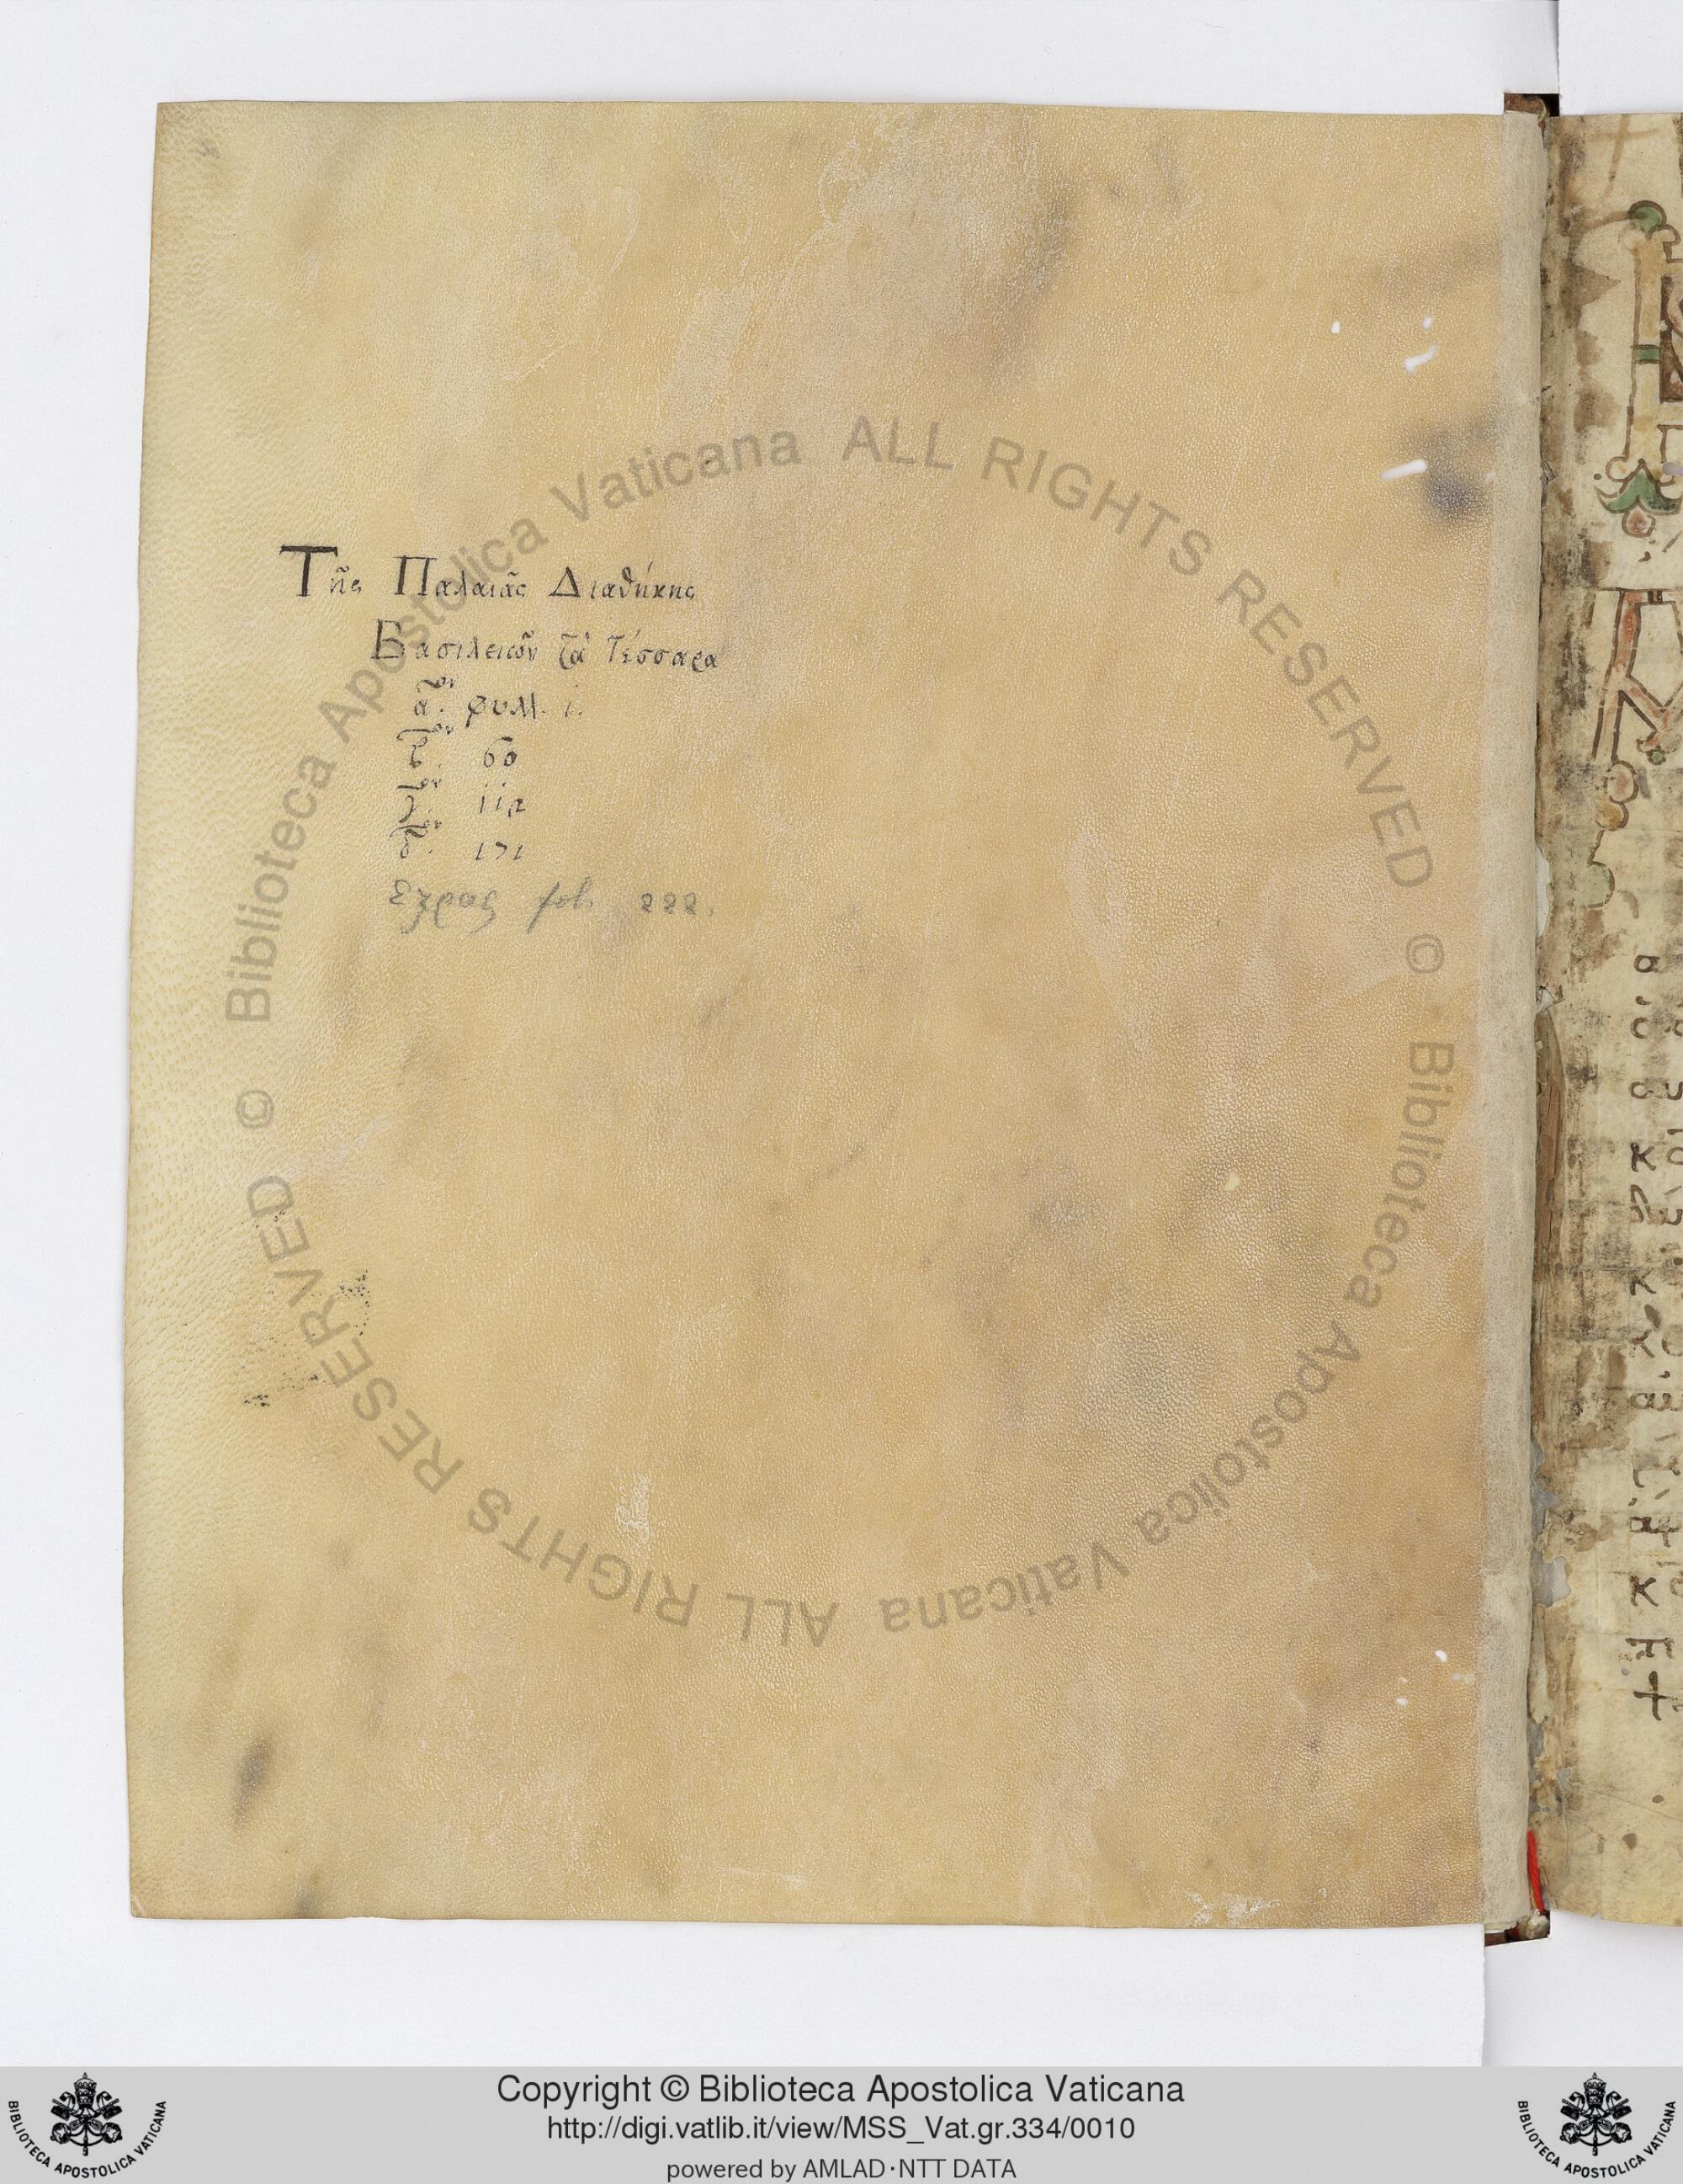 Τῆς Παλαιᾶς Διαθήκης
Βασιλειῶν τὰ τέσσαρα
α.ον φυλλ. 1.
β.ον 60
γ.ον 112
δ.ον 171
fol. 222.
© Biblioteca Apostolica Vaticana ALL RIGHTS RESERVED
© Biblioteca Apostolica Vaticana ALL RIGHTS RESERVED
Copyright © Biblioteca Apostolica Vaticana
http://digi.vatlib.it/view/MSS_Vat.gr.334/0010
powered by AMLAD·NTT DATA
BIBLIOTECA APOSTOLICA VATICANA
BIBLIOTECA APOSTOLICA VATICANA